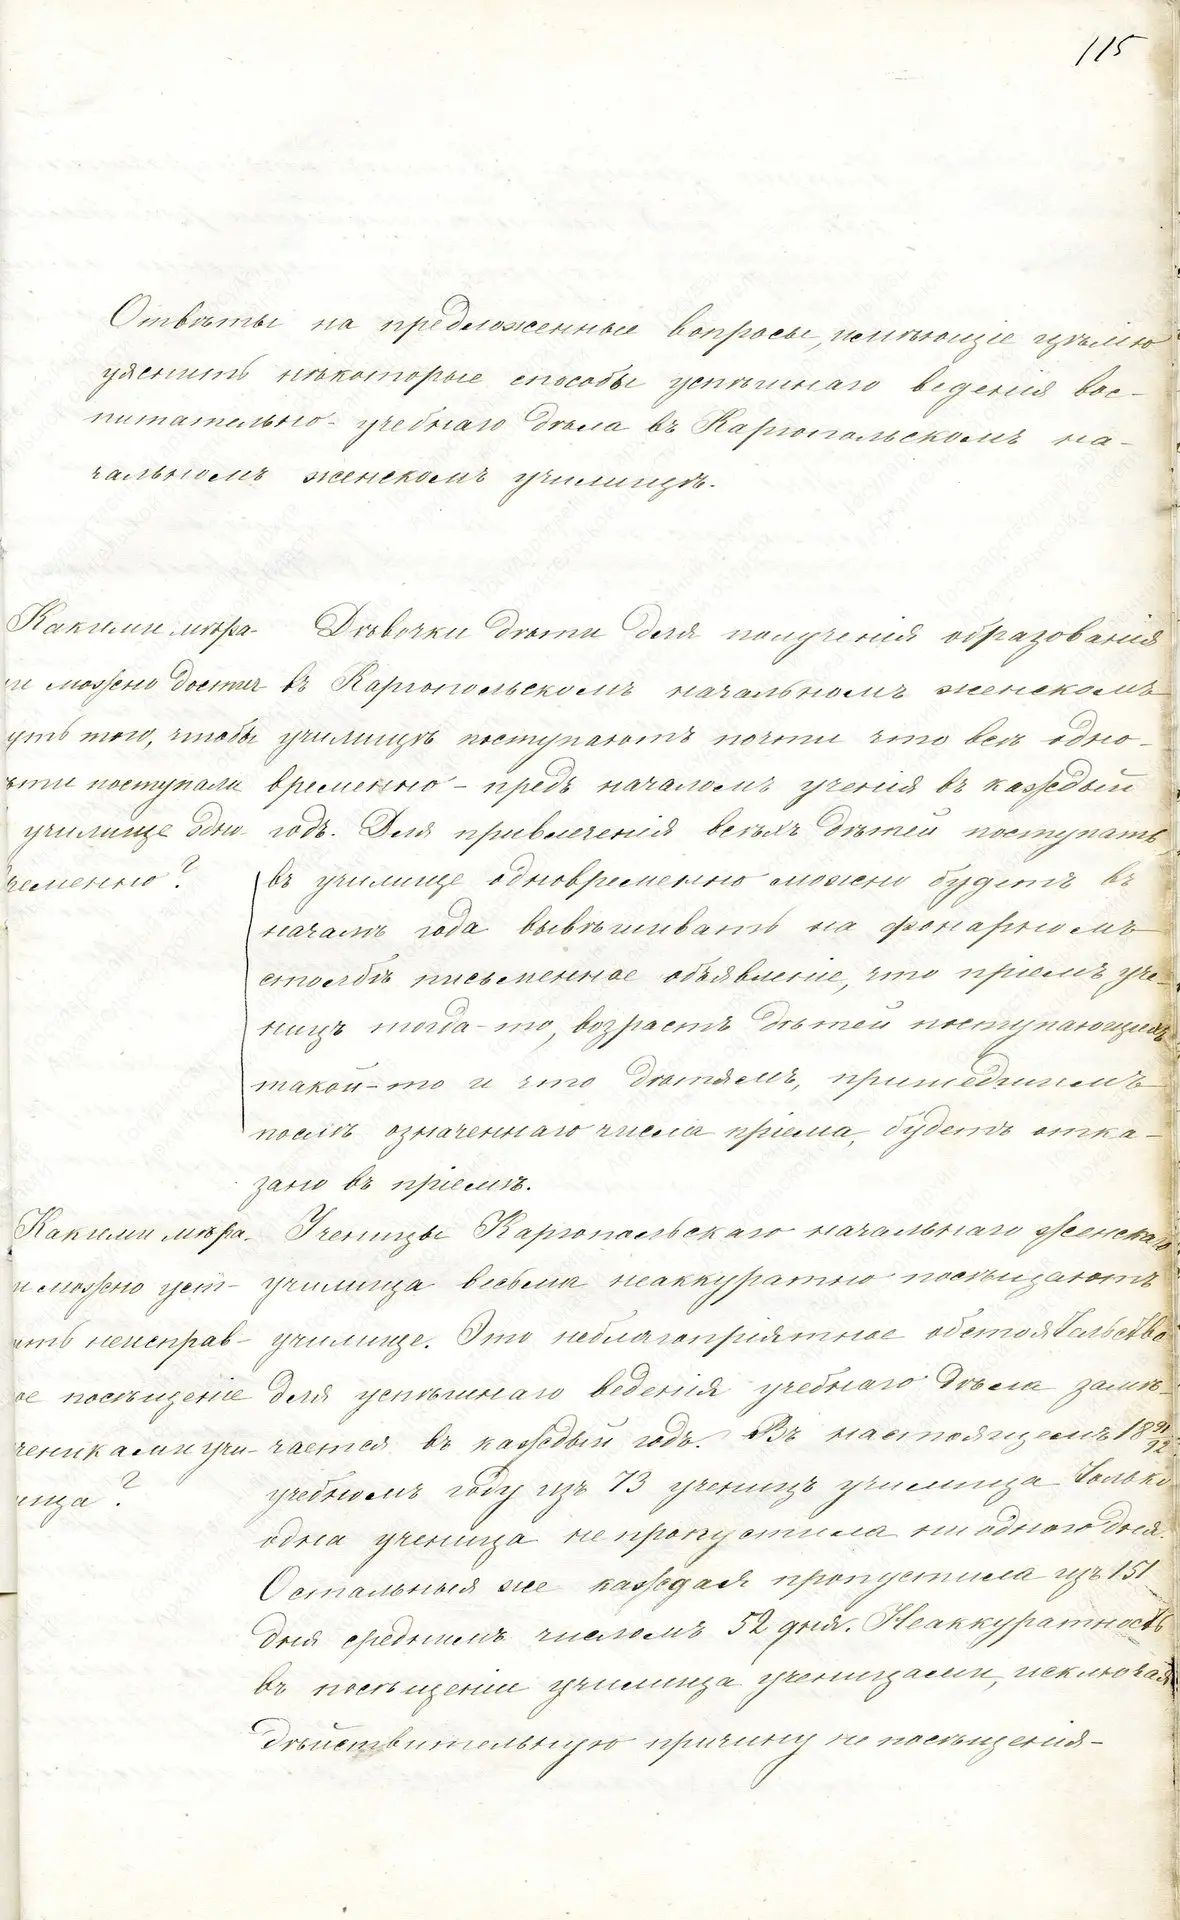 115
Отвѣты на предложенные вопросы, имѣющіе цѣлію
уяснить нѣкоторые способы успѣшнаго веденія вос-
питательно-учебнаго дѣла въ Каргопольскомъ на-
чальномъ женскомъ училищѣ.
Какими мѣра-
и можно достиг
уть того, чтобы
ѣти поступали
училище одно
временно?
Дѣвочки дѣти для полученія образованія
въ Каргопольскомъ начальномъ женскомъ
училищѣ поступаютъ почти что всѣ одно-
временно - предъ началомъ ученія въ каждый
годъ. Для привлеченія всѣхъ дѣтей поступать
въ училище одновременно можно будетъ въ
началѣ года вывѣшивать на фонарномъ
столбѣ письменное объявленіе, что пріемъ уче-
ницъ тогда-то, возрастъ дѣтей поступающихъ
такой-то и что дѣтямъ, пришедшимъ
послѣ означеннаго числа пріема, будетъ отка-
зано въ пріемѣ.
Какими мѣра-
и можно уст-
ить неисправ-
ое посѣщеніе
чениками учи-
ища?
Ученицы Каргопольскаго начальнаго женскаго
училища весьма неаккуратно посѣщаютъ
училище. Это неблагопріятное обстоятельство
для успѣшнаго веденія учебнаго дѣла замѣ-
чается въ каждый годъ. Въ настоящемъ 1891/92
учебномъ году изъ 73 ученицъ училища только
одна ученица не пропустила ни одного дня.
Остальныя же каждая пропустила изъ 151
дня среднимъ числомъ 52 дня. Неаккуратность
въ посѣщеніи училища ученицами, исключая
дѣйствительную причину не посѣщенія-